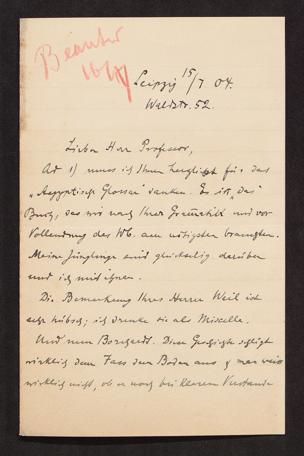 Beantw
16/7
Leipzig 15/7 04.
Waldstr. 52.
Lieber Herr Professor,
Ad 1) muss ich Ihnen herzlichst für das
„Aegyptische Glossar" danken. Es ist „das"
Buch, das wir nach Ihrer Grammatik und vor
Vollendung des Wb. am nötigsten brauchten.
Meine Jünglinge sind glückselig darüber
und ich mit ihnen.
Die Bemerkung Ihres Herrn Weil ist
sehr hübsch; ich drucke sie als Miscelle.
Und nun Borchardt. Diese Geschichte schlägt
wirklich dem Fass den Boden aus & man weiss
wirklich nicht, ob er noch bei klarem Verstande